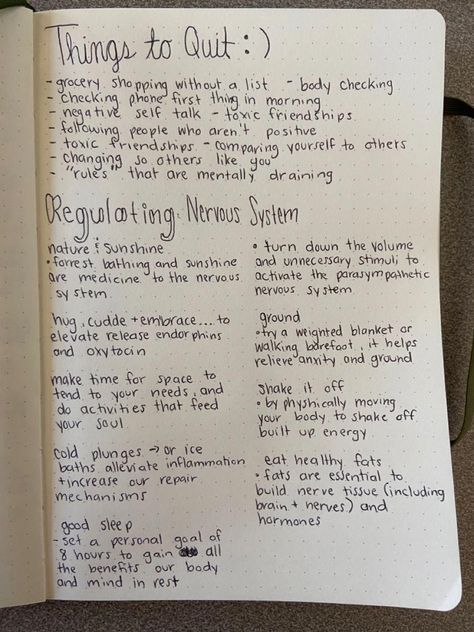 Things to Quit :)
- grocery shopping without a list - body checking
- checking phone first thing in morning
- negative self talk - toxic friendships
- following people who aren't positive
- toxic friendships - comparing yourself to others
- changing so others like you
- "rules" that are mentally draining
Regulating Nervous System
nature & sunshine
• forrest bathing and sunshine
are medicine to the nervous
system
hug, cudde + embrace... to
elevate release endorphins
and oxytocin
make time for space to
tend to your needs and
do activities that feed
your soul
cold plunges → or ice
baths alleviate inflammation
+ increase our repair
mechanisms
good sleep
- set a personal goal of
8 hours to gain all
the benefits our body
and mind in rest
• turn down the volume
and unnecessary stimuli to
activate the parasympathetic
nervous system
ground
• try a weighted blanket or
walking barefoot, it helps
relieve anxity and ground
shake it off
• by physhically moving
your body to shake off
built up energy
eat healthy fats
• fats are essential to
build nerve tissue (including
brain + nerves) and
hormones